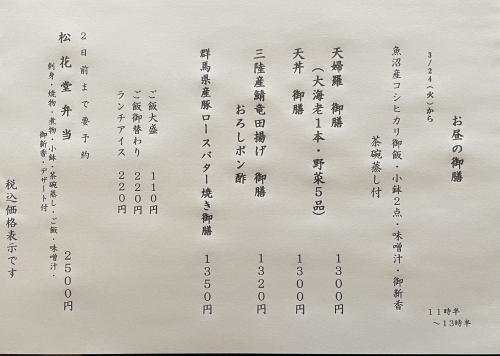 お昼の御膳
11時半
～13時半
3/24（火）から
魚沼産コシヒカリ御飯・小鉢２点・味噌汁・御新香
茶碗蒸し付
天婦羅　御膳　１３００円
（大海老１本・野菜５品）
天丼　御膳　１３００円
三陸産鯖竜田揚げ　御膳　１３２０円
おろしポン酢
群馬県産豚ロースバター焼き御膳　１３５０円
ご飯大盛　１１０円
ご飯御替わり　２２０円
ランチアイス　２２０円
２日前まで要予約
松花堂弁当　２５００円
刺身・焼物・煮物・小鉢・茶碗蒸し・ご飯・味噌汁・
御新香・デザート付
税込価格表示です